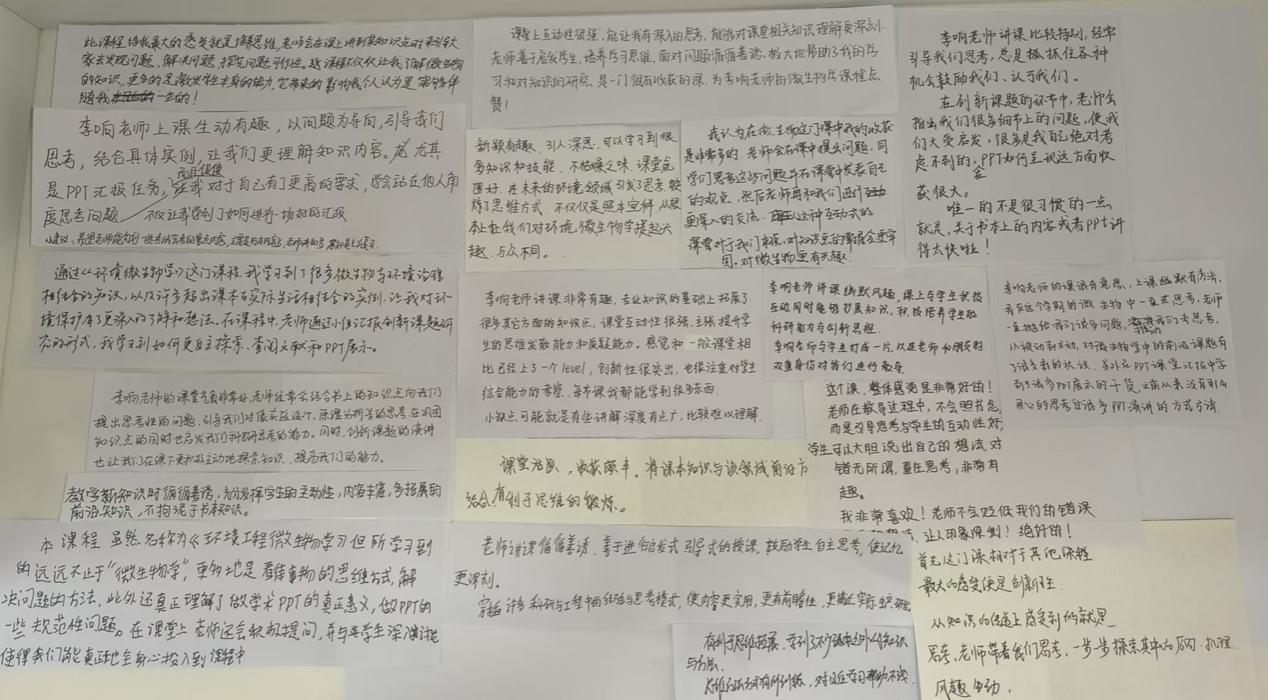 此课程给我最大的感受就是培养思维,老师会在课上讲到某知识点时来引导大
家去发现问题,解决问题,探究问题可行性。这课程不仅仅让我了解微生物
的知识,更多的是激发学生本身的能力,它带来的影响我个人认为是
随我一生的!
李响老师上课生动有趣,以问题为导向,引导我们
思考,结合具体实例,让我们更理解知识内容。尤其
是PPT汇报任务,我对于自己有了更高的要求,学会站在他人角
度思考问题 不仅让我学到了如何进行一场好的汇报
小建议:希望老师能
通过《环境微生物学》这门课程,我学习到了很多微生物与环境治理
相结合的知识,以及许多超出课本与实际生活相结合的实例,让我对环
境保护有了更深入的了解和想法。在课程中,老师通过小组汇报创新课题研
究的形式,我学习到如何更自主探索、查阅文献和PPT展示。
李响老师的课堂气氛非常好,老师经常会结合书上的知识点向我们
提出思考性的问题,引导我们对像实验设计、原理分析等的思考,在巩固
知识点的同时也启发我们科研思考的能力。同时,创新课题的演讲
也让我们在课下更积极主动地探索知识,提高我们的能力。
教学新知识时循循善诱,充分发挥学生的主动性,内容丰富,多拓展的
前沿知识,不拘泥于书本知识。
本课程 虽然名称为《环境工程微生物学》但所学习到
的远远不止于“微生物学”,更多地是看待事物的思维方式,解
决问题的方法,此外还真正理解了做学术PPT的真正意义,做PPT的
一些规范性问题。在课堂上老师还会积极提问,并与学生深入讨论
使得我们能真正地全身心投入到课程中
课堂上互动性很强,能让我有深入的思考,能够对课堂相关知识理解更深刻.
老师善于启发学生,培养学习思维,面对问题循循善诱,极大地帮助了我的学
习和对知识的研究,是一门很有收获的课.为李响老师的微生物学课程点
赞!
新颖有趣、引人深思,可以学习到很
多知识和技能,不枯燥乏味,课堂氛
围好,在未来的环境领域引发了思考,锻
炼了思维方式,不仅仅是照本宣科,从根
本上让我们对环境微生物学提起兴
趣,与众不同。
我认为在微生物这门课中我的收获
是非常多的,老师会在课中提出问题,同
学们思考这些问题并在课堂中发表自己
的观点,然后老师再和我们进行
更深入的交流.这种互动式的
课堂对于我们来说,对知识点的掌握会更牢
固,对微生物更有兴趣.
李响老师讲课非常有趣,专业知识的基础上拓展了
很多其它方面的知识点,课堂互动性很强,主张提升学
生的思维发散能力和质疑能力。感觉和一般课堂相
比已经上了一个level,创新性很突出,也很注重对学生
综合能力的考察,每节课我都能学到很多东西.
小缺点可能就是有些讲解深度有点广,比较难以理解.
课堂活跃,收获颇丰,将课本知识与该领域前沿方
结合,有利于思维的锻炼。
老师讲课循循善诱、善于进行启发式引导式的授课,鼓励学生自主思考,使记忆
更深刻.
穿插许多科研与工程中的经验与思考模式,使内容更实用,更有前瞻性,更贴近实际生产、研究
有利于思维拓展,学到了不少课本之外的知识
与方法.
思维方面有所训练,对以后学习帮助不少.
李响老师讲课比较特别,经常
引导我们思考,总是抓住各种
机会鼓励我们、认可我们。
在创新课题的汇报中,老师会
指出我们很多细节上的问题,使我
们大受启发,很多是我自己绝对考
虑不到的,PPT如何呈现这方面收
获很大。
唯一的不是很习惯的一点
就是,关于书本上的内容或者PPT讲
得太快啦!
李响老师讲课幽默风趣,课上与学生积极
互动同时能够扩展知识,积极培养学生的
科研能力与创新思想.
李响老师与学生打成一片,以连老师和朋友的
双重身份对我们进行教导
李响老师的课很有意思,上课幽默有方法,
我在这个学期的微生物中一直在思考,老师
一直抛给我们很多问题,我们去思考,
从被动到主动,对微生物学中的前沿课题有
了许多新的认识,另外在PPT课堂汇报中学
到了许多PPT展示的干货,之前从来没有那么
用心的思考过许多PPT演讲的方式方法.
这个课,整体感受是非常好的!
老师在教导过程中,不会照书念,
而是引导思考与学生的互动性好,
学生可以大胆说出自己的想法,对
错无所谓,重在思考,非常有
趣。
我非常喜欢!老师不会贬低我们的错误
让人印象深刻!绝好的!
首先这门课相对于其他课程
最大的感受便是创新性
从知识的传递上感受到的就是
思考,老师带着我们思考,一步一步探索其中的原因、机理.
风趣生动,